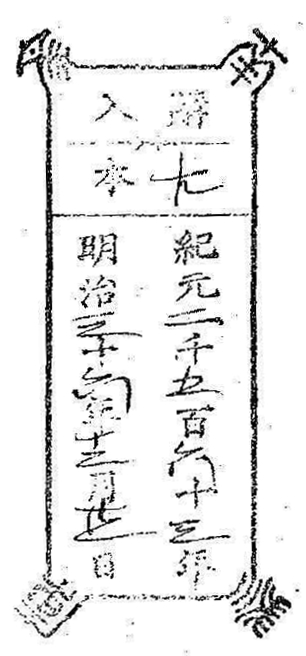 購入
九本
紀元二千五百六十三年
明治三十六年十二月廿一日